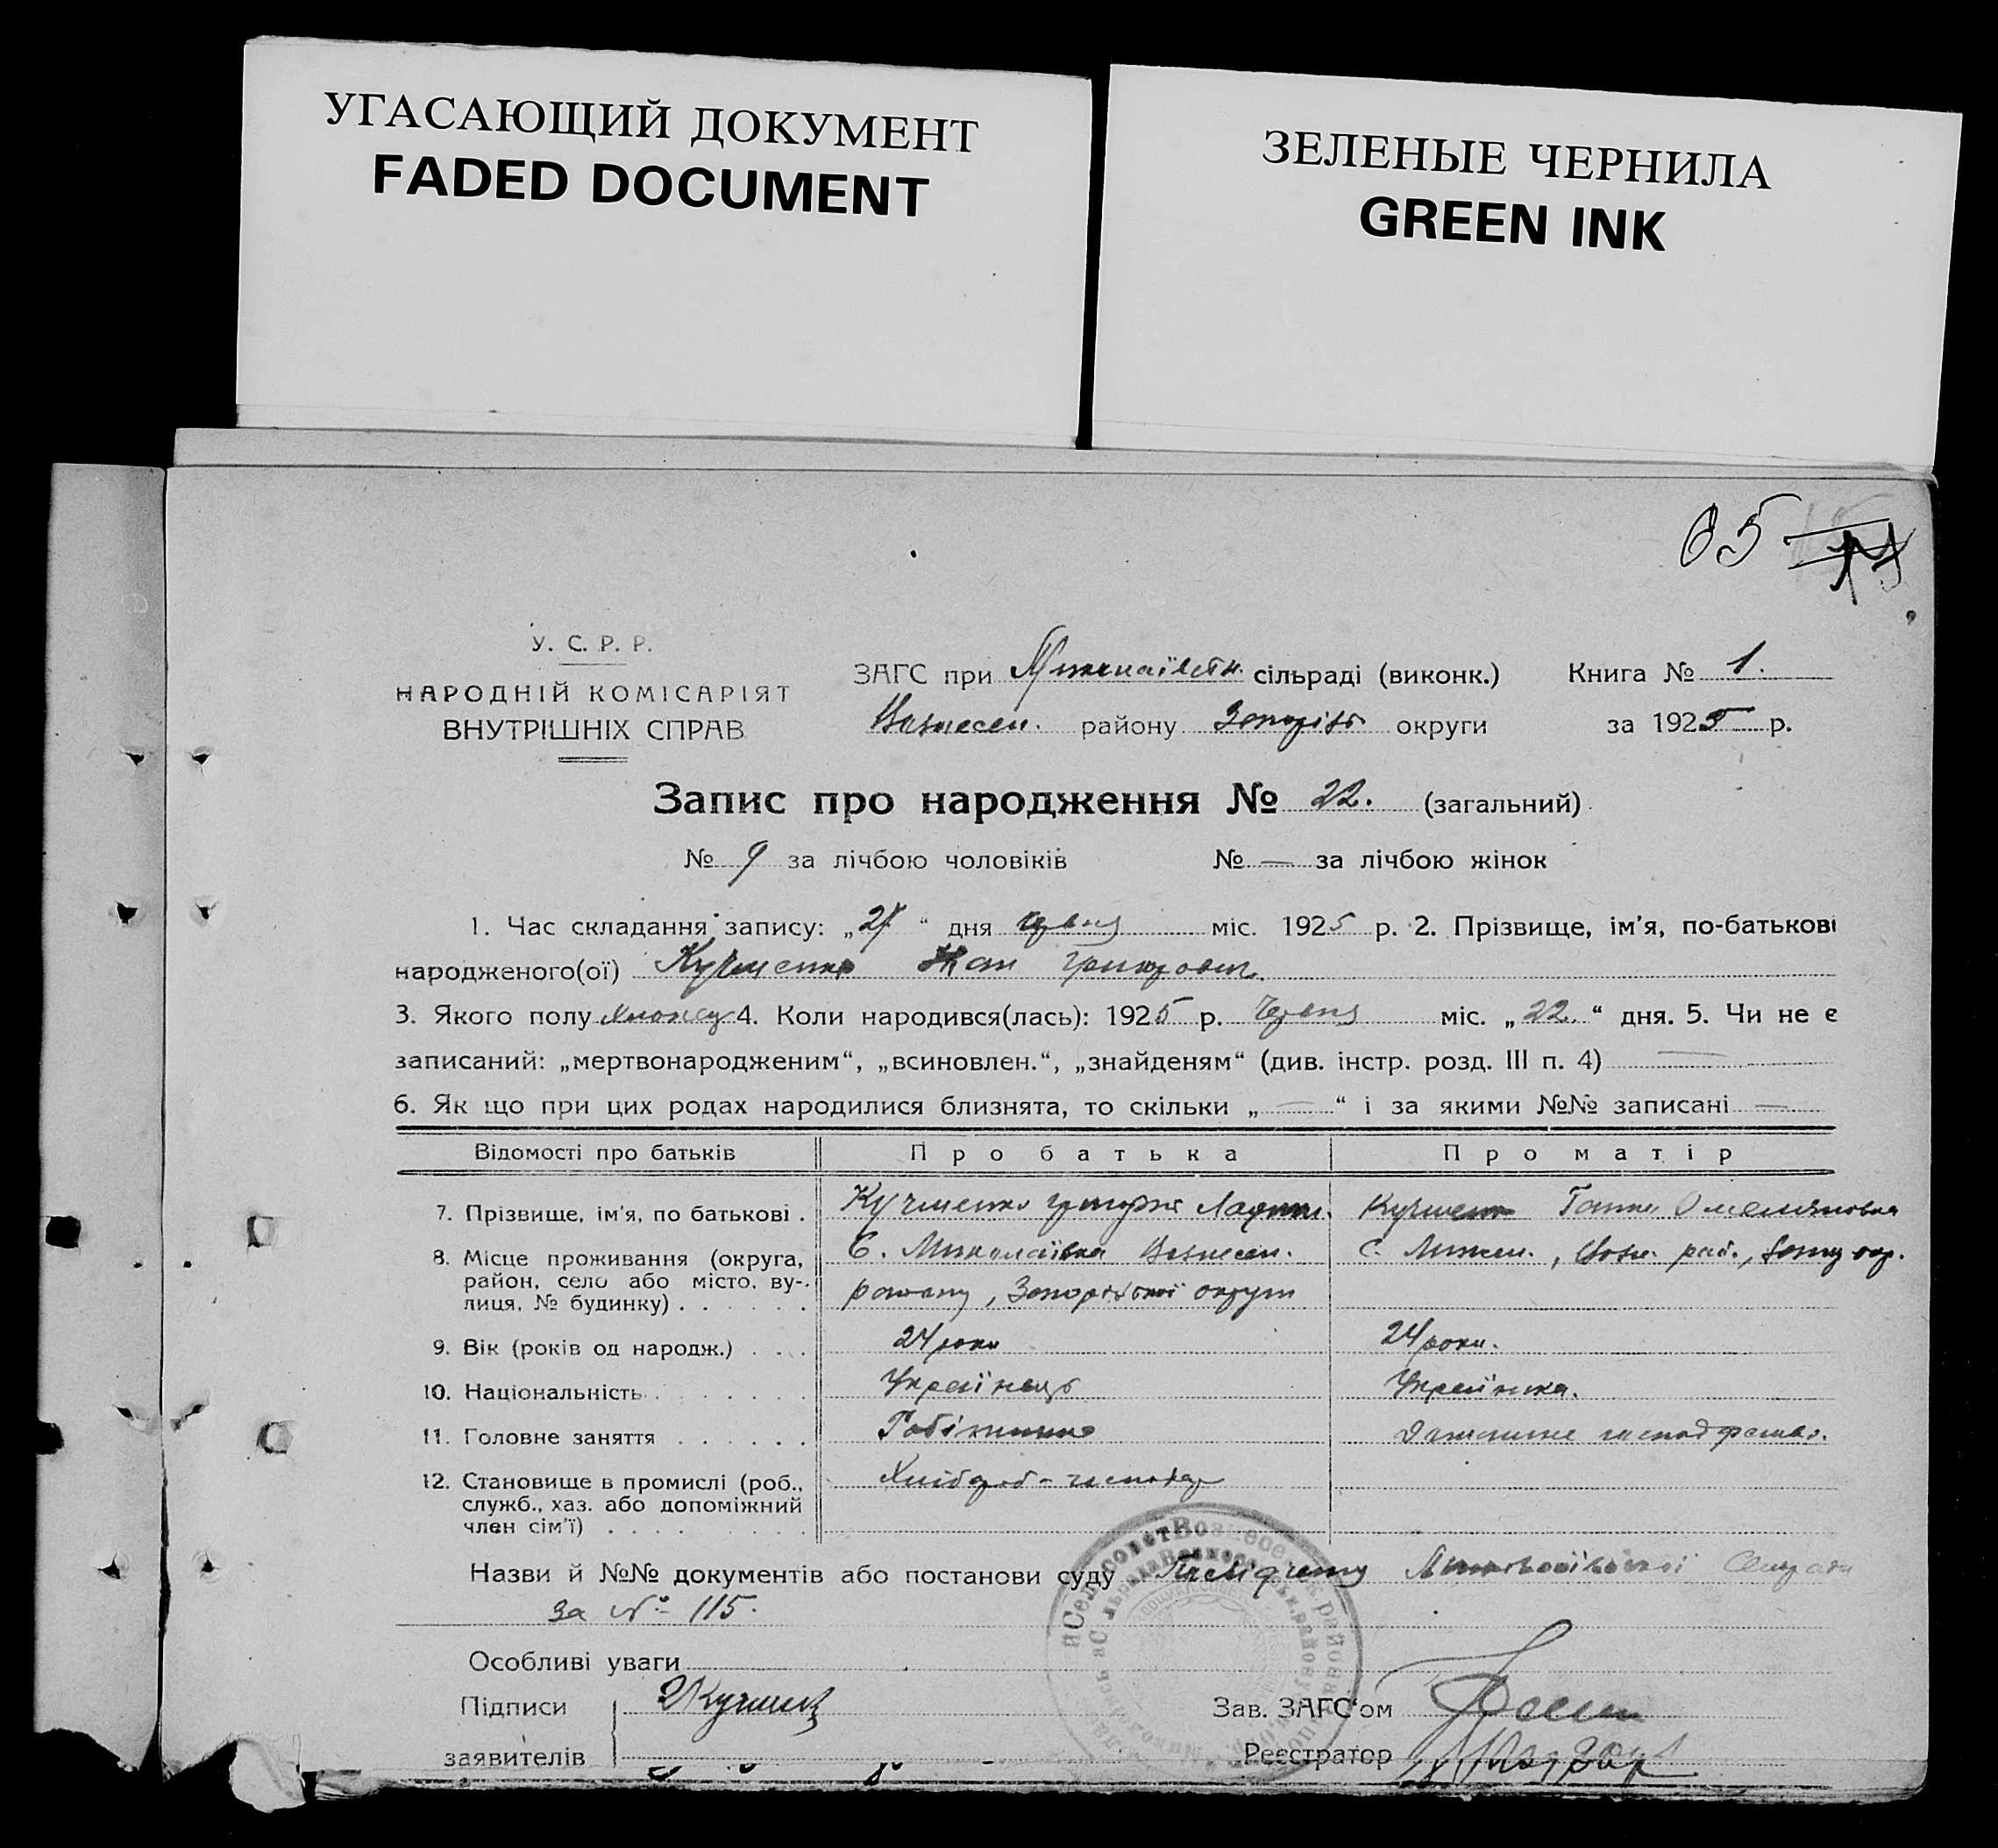 УГАСАЮЩИЙ ДОКУМЕНТ
FADED DOCUMENT
ЗЕЛЕНЫЕ ЧЕРНИЛА
GREEN INK
65
У. С. Р. Р.
НАРОДНІЙ КОМІСАРІЯТ
ВНУТРІШНІХ СПРАВ
ЗАГС при сільраді (виконк.) Книга № 1.
Вознесен. району Запоріз. округи за 1925 р.
Запис про народження № 22. (загальний)
№ 9 за лічбою чоловіків № — за лічбою жінок
1. Час складання запису: „ “ дня червня міс. 1925 р. 2. Прізвище, ім'я, по-батькові
народженого(ої) Кучменко
3. Якого полу 4. Коли народився(лась): 1925 р. Червня міс. „22.“ дня. 5. Чи не є
записаний: „мертвонародженим“, „всиновлен.“, „знайденям“ (див. інстр. розд. III п. 4) —
6. Як що при цих родах народилися близнята, то скільки „—“ і за якими №№ записані —
Відомості про батьків Про батька Про матір
7. Прізвище, ім'я, по батькові . Кучменко Кучменко Ганна Омеляновна
8. Місце проживання (округа, С. Миколаївка Вознесен. С. Микол., Возн. рай., окр.
район, село або місто, ву-
лиця, № будинку) . . . . . району, Запорізької округи
9. Вік (років од народж.) . . . 24 роки 24 роки.
10. Національність . . . . . . Українець Українка.
11. Головне заняття . . . . . . Домашнє господарство.
12. Становище в промислі (роб., Хлібороб-господар
служб., хаз. або допоміжний
член сім'ї) . . . . . . . .
Назви й №№ документів або постанови суду Миколаївської Сільради
за № 115.
Особливі уваги
Підписи Зав. ЗАГС‘ом
заявителів Реєстратор